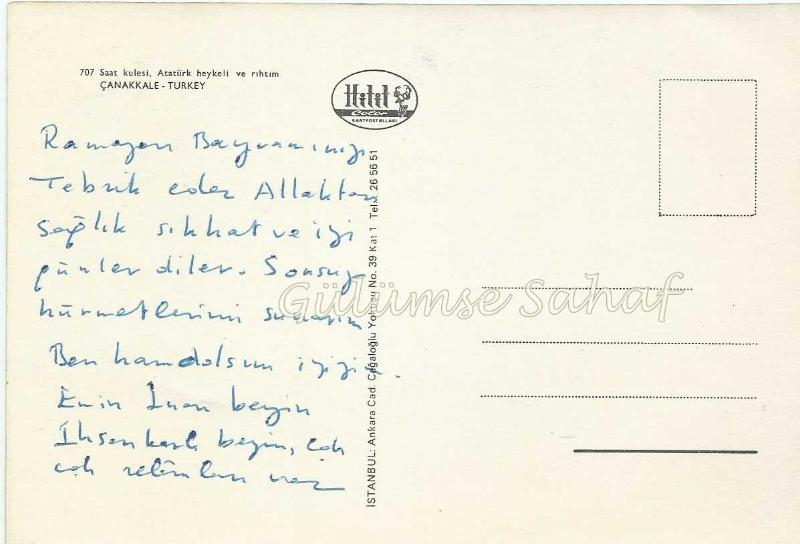 707 Saat kulesi, Atatürk heykeli ve rıhtım
ÇANAKKALE - TURKEY
Hitit
Color
KARTPOSTALLARI
Ramazan Bayramınızı
Tebrik eder Allahtan
Sağlık sıhhat ve iyi
günler diler. Sonsuz
hürmetlerimi sunarım
Ben hamdolsun iyiyim.
Emin İnan beyin
İhsan beyin, çok
çok selâmları var
İSTANBUL: Ankara Cad. Cağaloğlu Yokuşu No. 39 Kat 1 Tel.: 26 56 51
Gülümse Sahaf